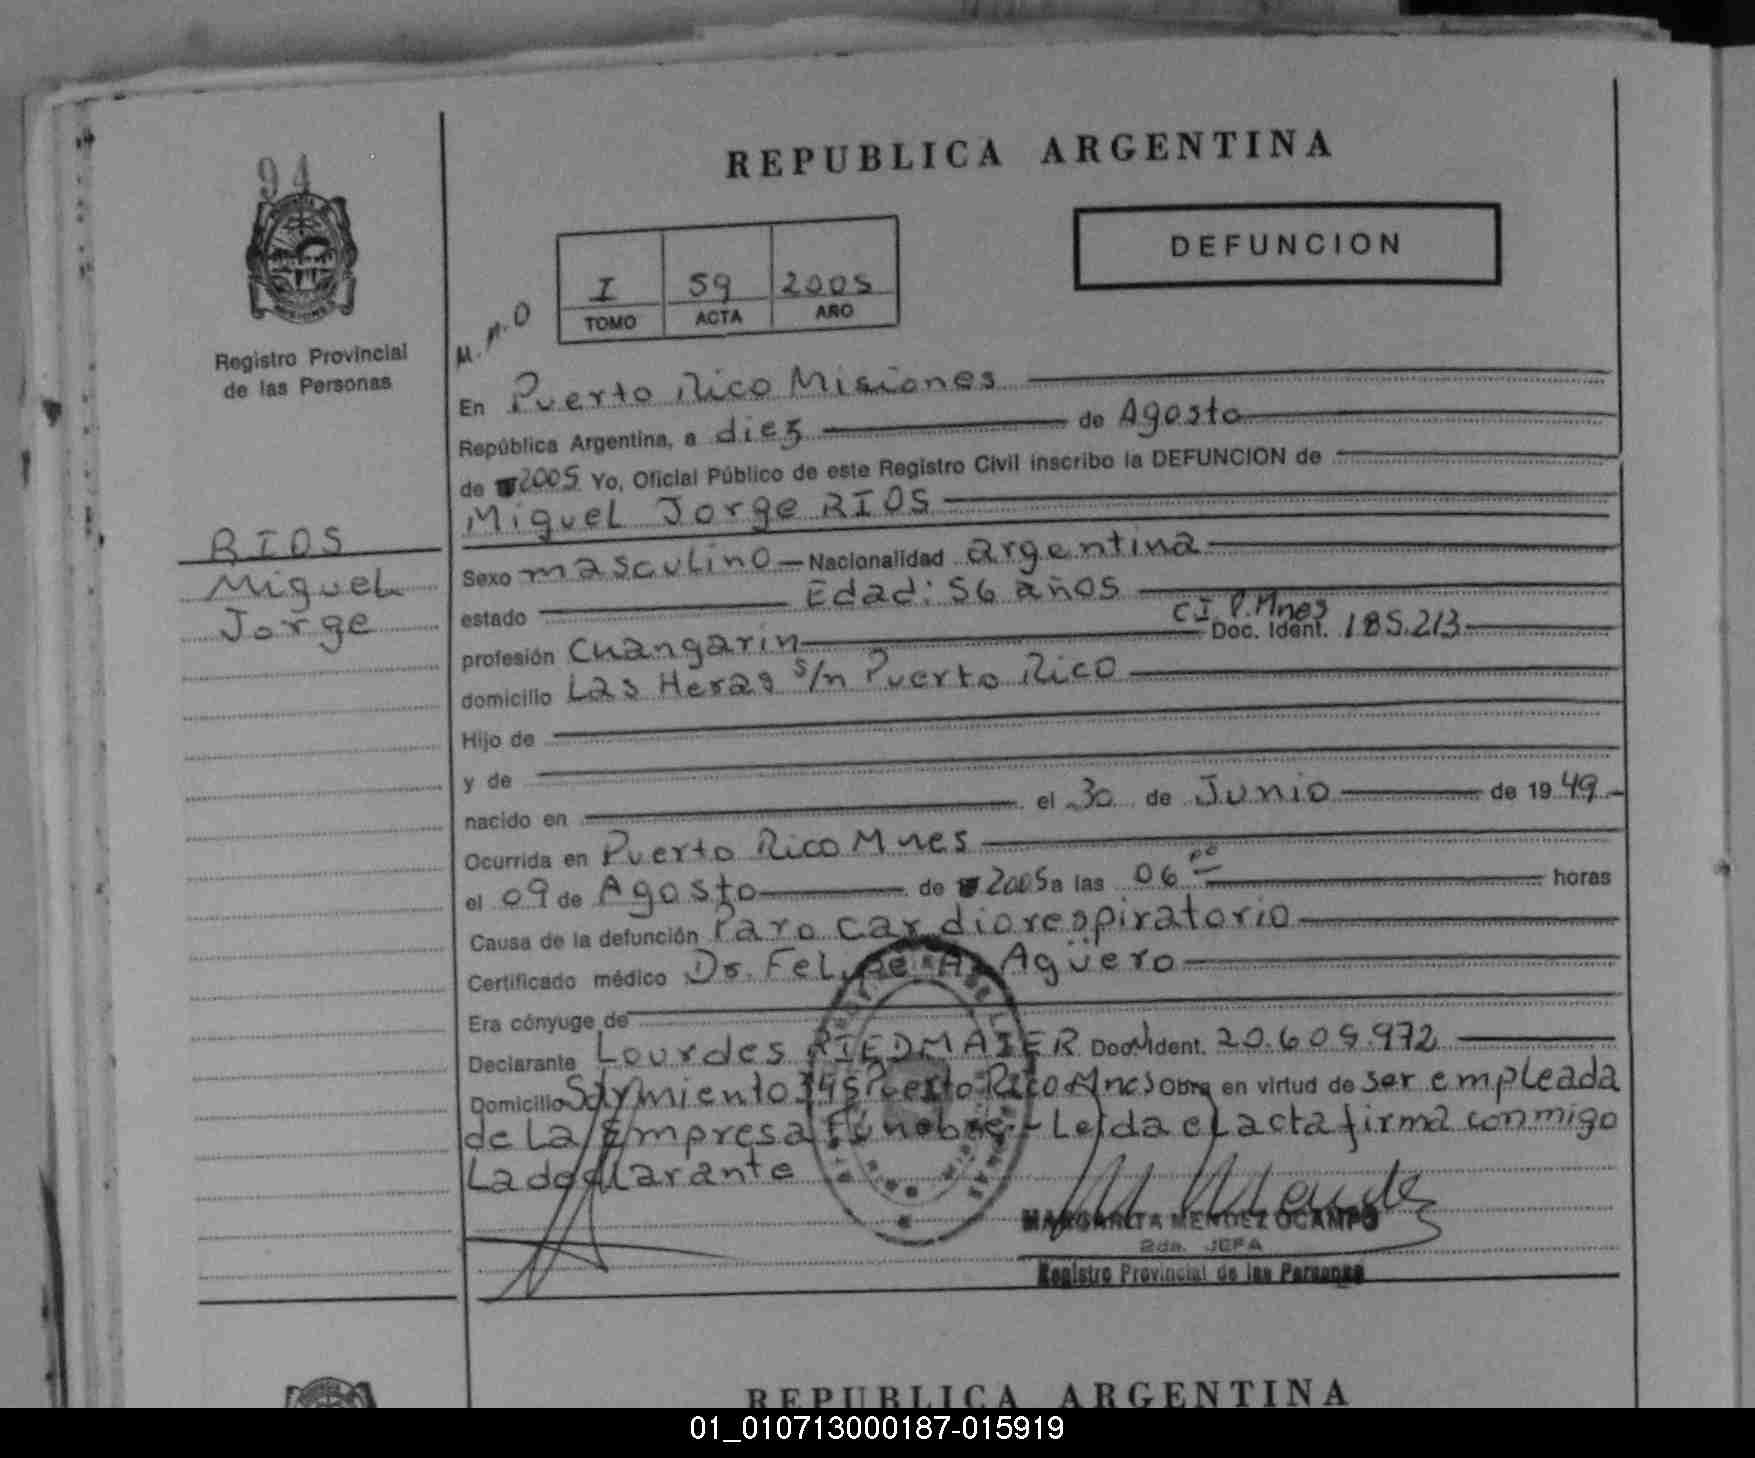 94
REPUBLICA ARGENTINA
DEFUNCION
I 59 2005
TOMO ACTA AÑO
M. M. O
Registro Provincial
de las Personas
RIOS
Miguel
Jorge
En Puerto Rico Misiones
República Argentina, a diez de Agosto
de 2005 Yo, Oficial Público de este Registro Civil inscribo la DEFUNCION de
Miguel Jorge RIOS
Sexo masculino Nacionalidad argentina
estado Edad: 56 años
C.I. P. Mnes
profesión Changarin Doc. Ident. 185.213
domicilio Las Heras s/n Puerto Rico
Hijo de
y de
nacido en el 30 de Junio de 1949
Ocurrida en Puerto Rico Mnes
el 09 de Agosto de 2005 a las 06 00 horas
Causa de la defunción Paro cardiorespiratorio
Certificado médico Dr. Felipe A. Agüero
Era cónyuge de
Declarante Lourdes RIEDMAIER Doc. Ident. 20.605.972
Domicilio Sarmiento 345 Puerto Rico Mnes Obra en virtud de ser empleada
de La Empresa Fúnebre - Leida el acta firma conmigo
La declarante
MARGARITA MENDEZ OCAMPO
2da. JEFA
Registro Provincial de las Personas
REPUBLICA ARGENTINA
01_010713000187-015919